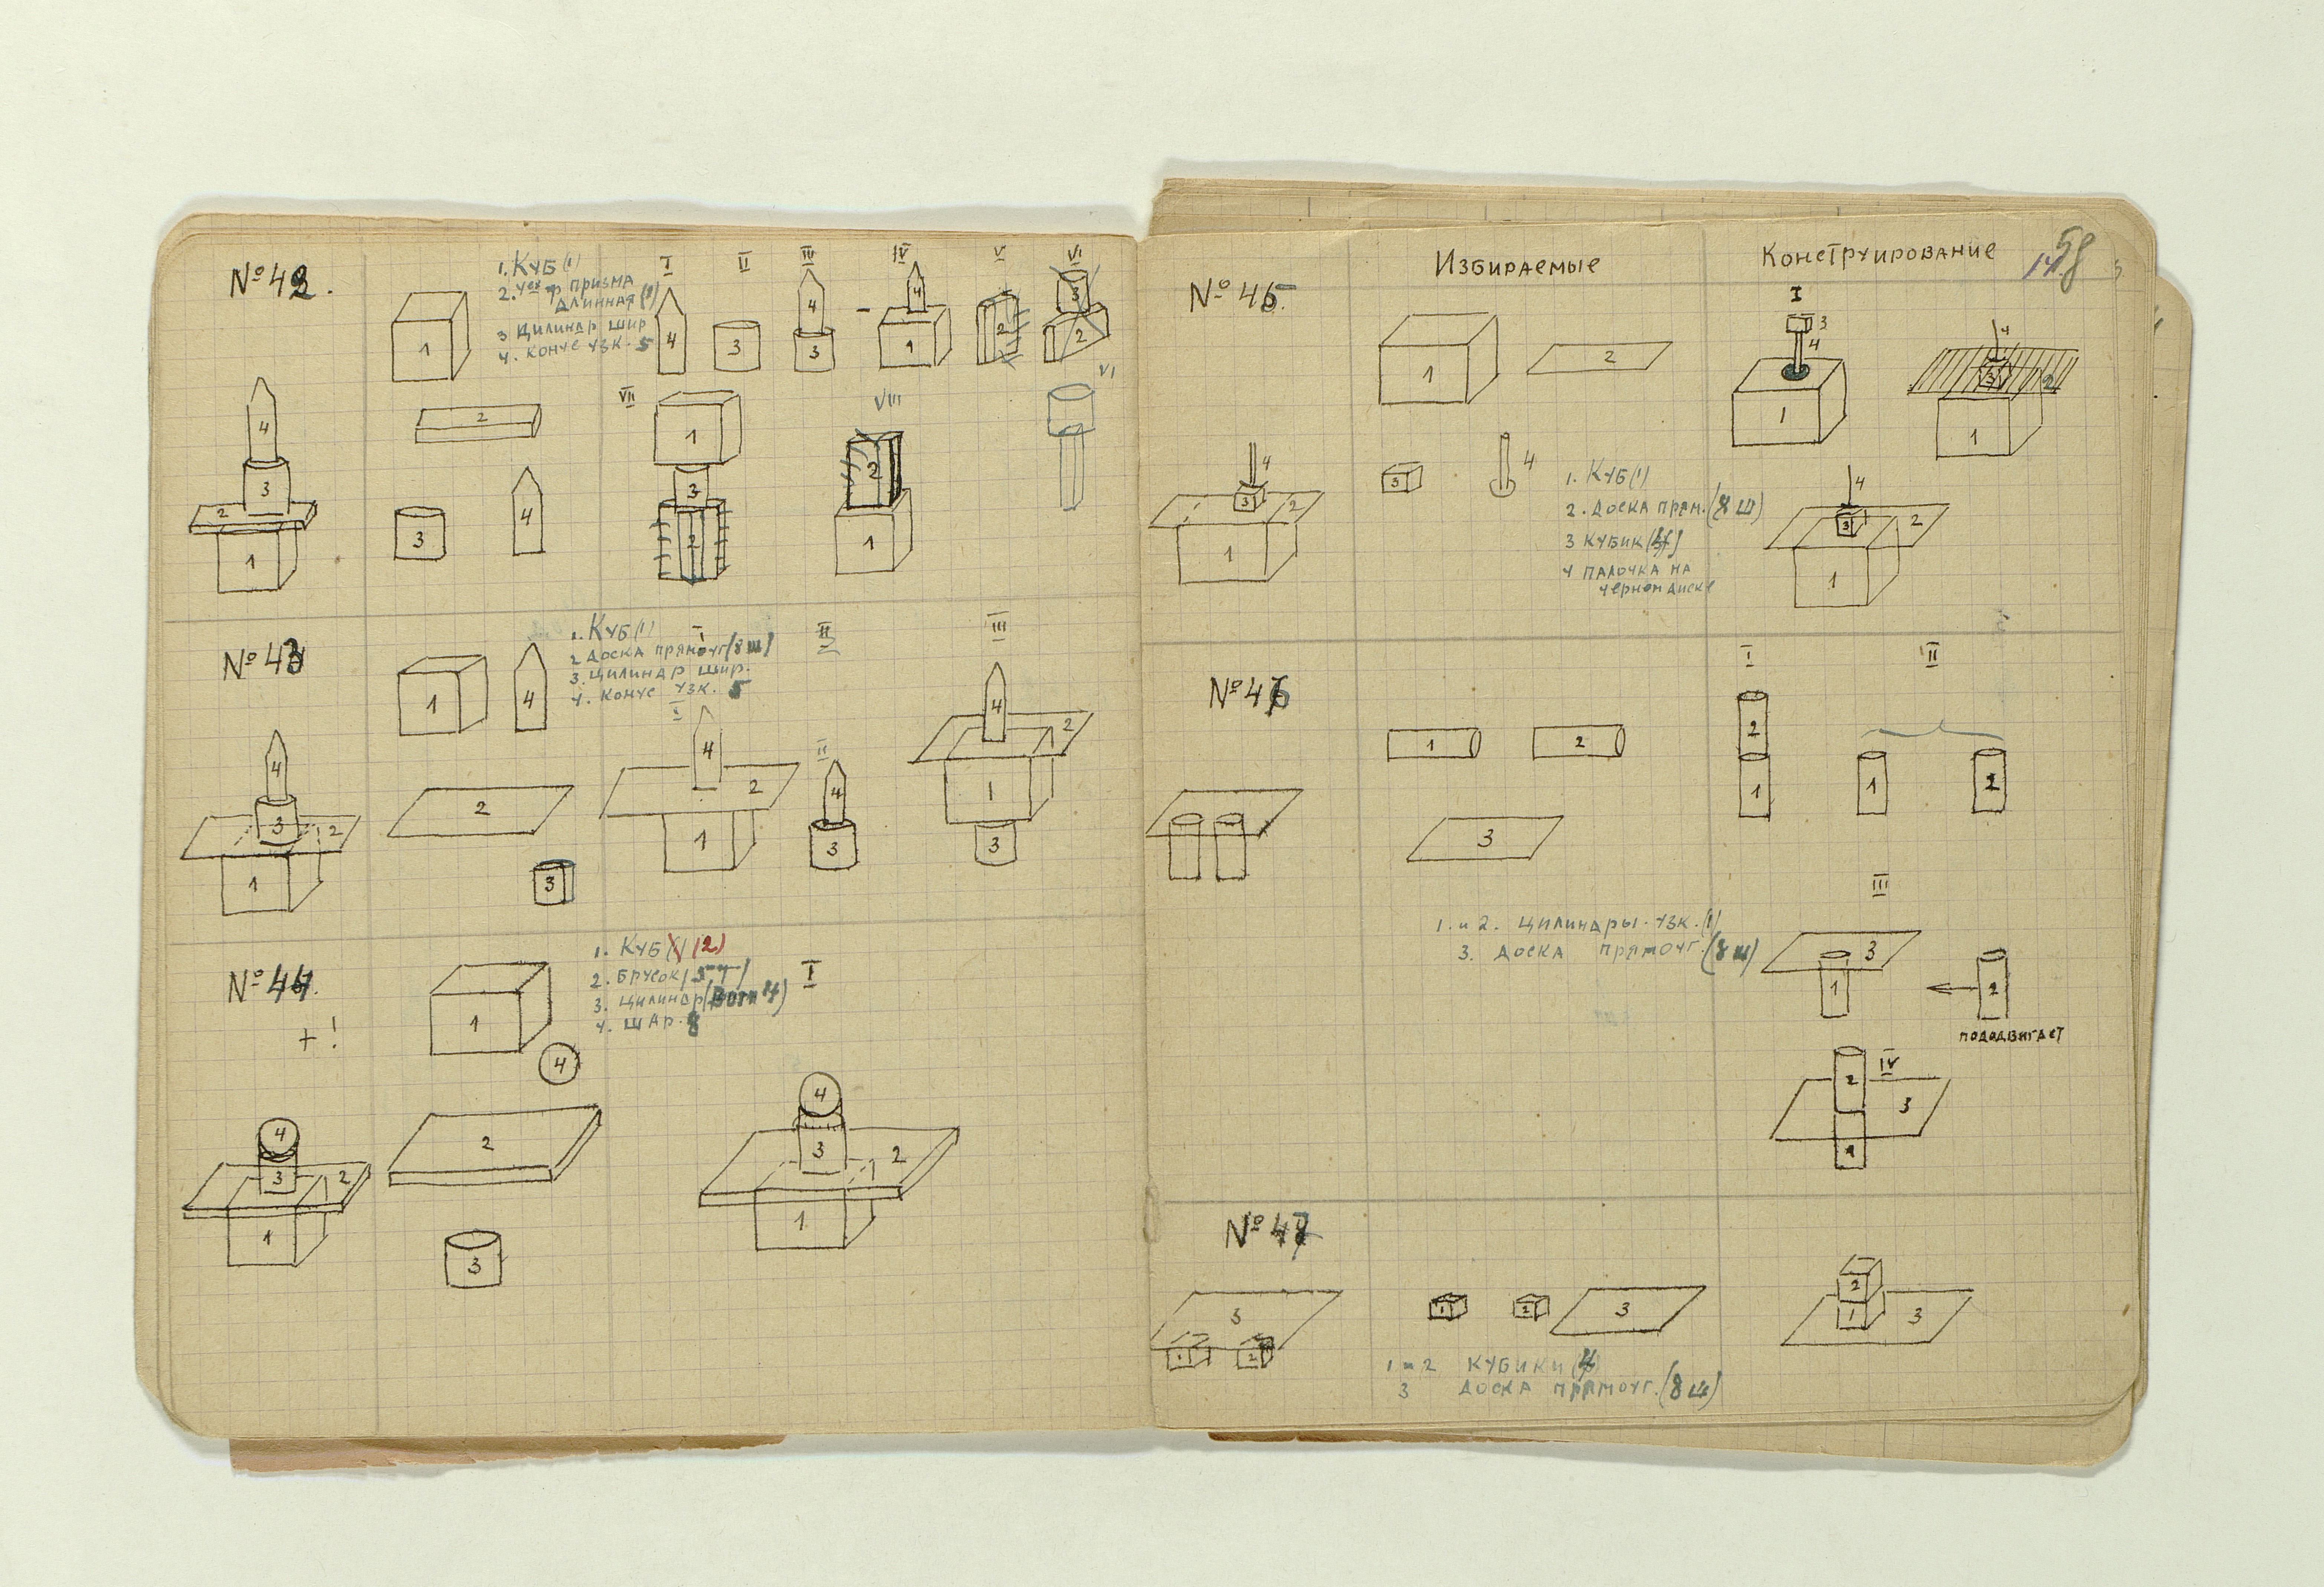 № 42.
1. Куб (1)
2. Призма
длинная
3 Цилиндр шир
4. Конус узк. 5
I II III IV V VI
1
4
3
4
3
4
1
2
3
2
VII
VIII
VI
2
1
2
4
3
4
3
2
1
3
2
1
№ 43
1. Куб (1)
2 Доска прямоуг (8 ш)
3. Цилиндр шир.
4. Конус узк. 5
I II III
I
II
1
4
4
2
4
2
1
4
3
4
2
1
3
2
3
4
3
2
1
№ 44.
+!
1. Куб (2)
2. Брусок
3. Цилиндр
4. Шар. 8
I
1
4
2
3
4
3
2
1
4
3
2
1
Избираемые
Конструирование
58
№ 45.
I
1
2
3
4
3
4
1
4
3
2
1
4
3
2
1
1. Куб (1)
2. Доска прям. (8 ш)
3 Кубик
4 Палочка на
черном диске
4
3
2
1
№ 46
I
II
1
2
3
2
1
1
2
III
1 и 2. Цилиндры узк. (1)
3. Доска прямоуг. (8 ш)
3
1
2
пододвигает
IV
2
3
1
№ 47
3
1
2
1
2
3
2
1
3
1 и 2 Кубики (4)
3 Доска прямоуг. (8 ш)